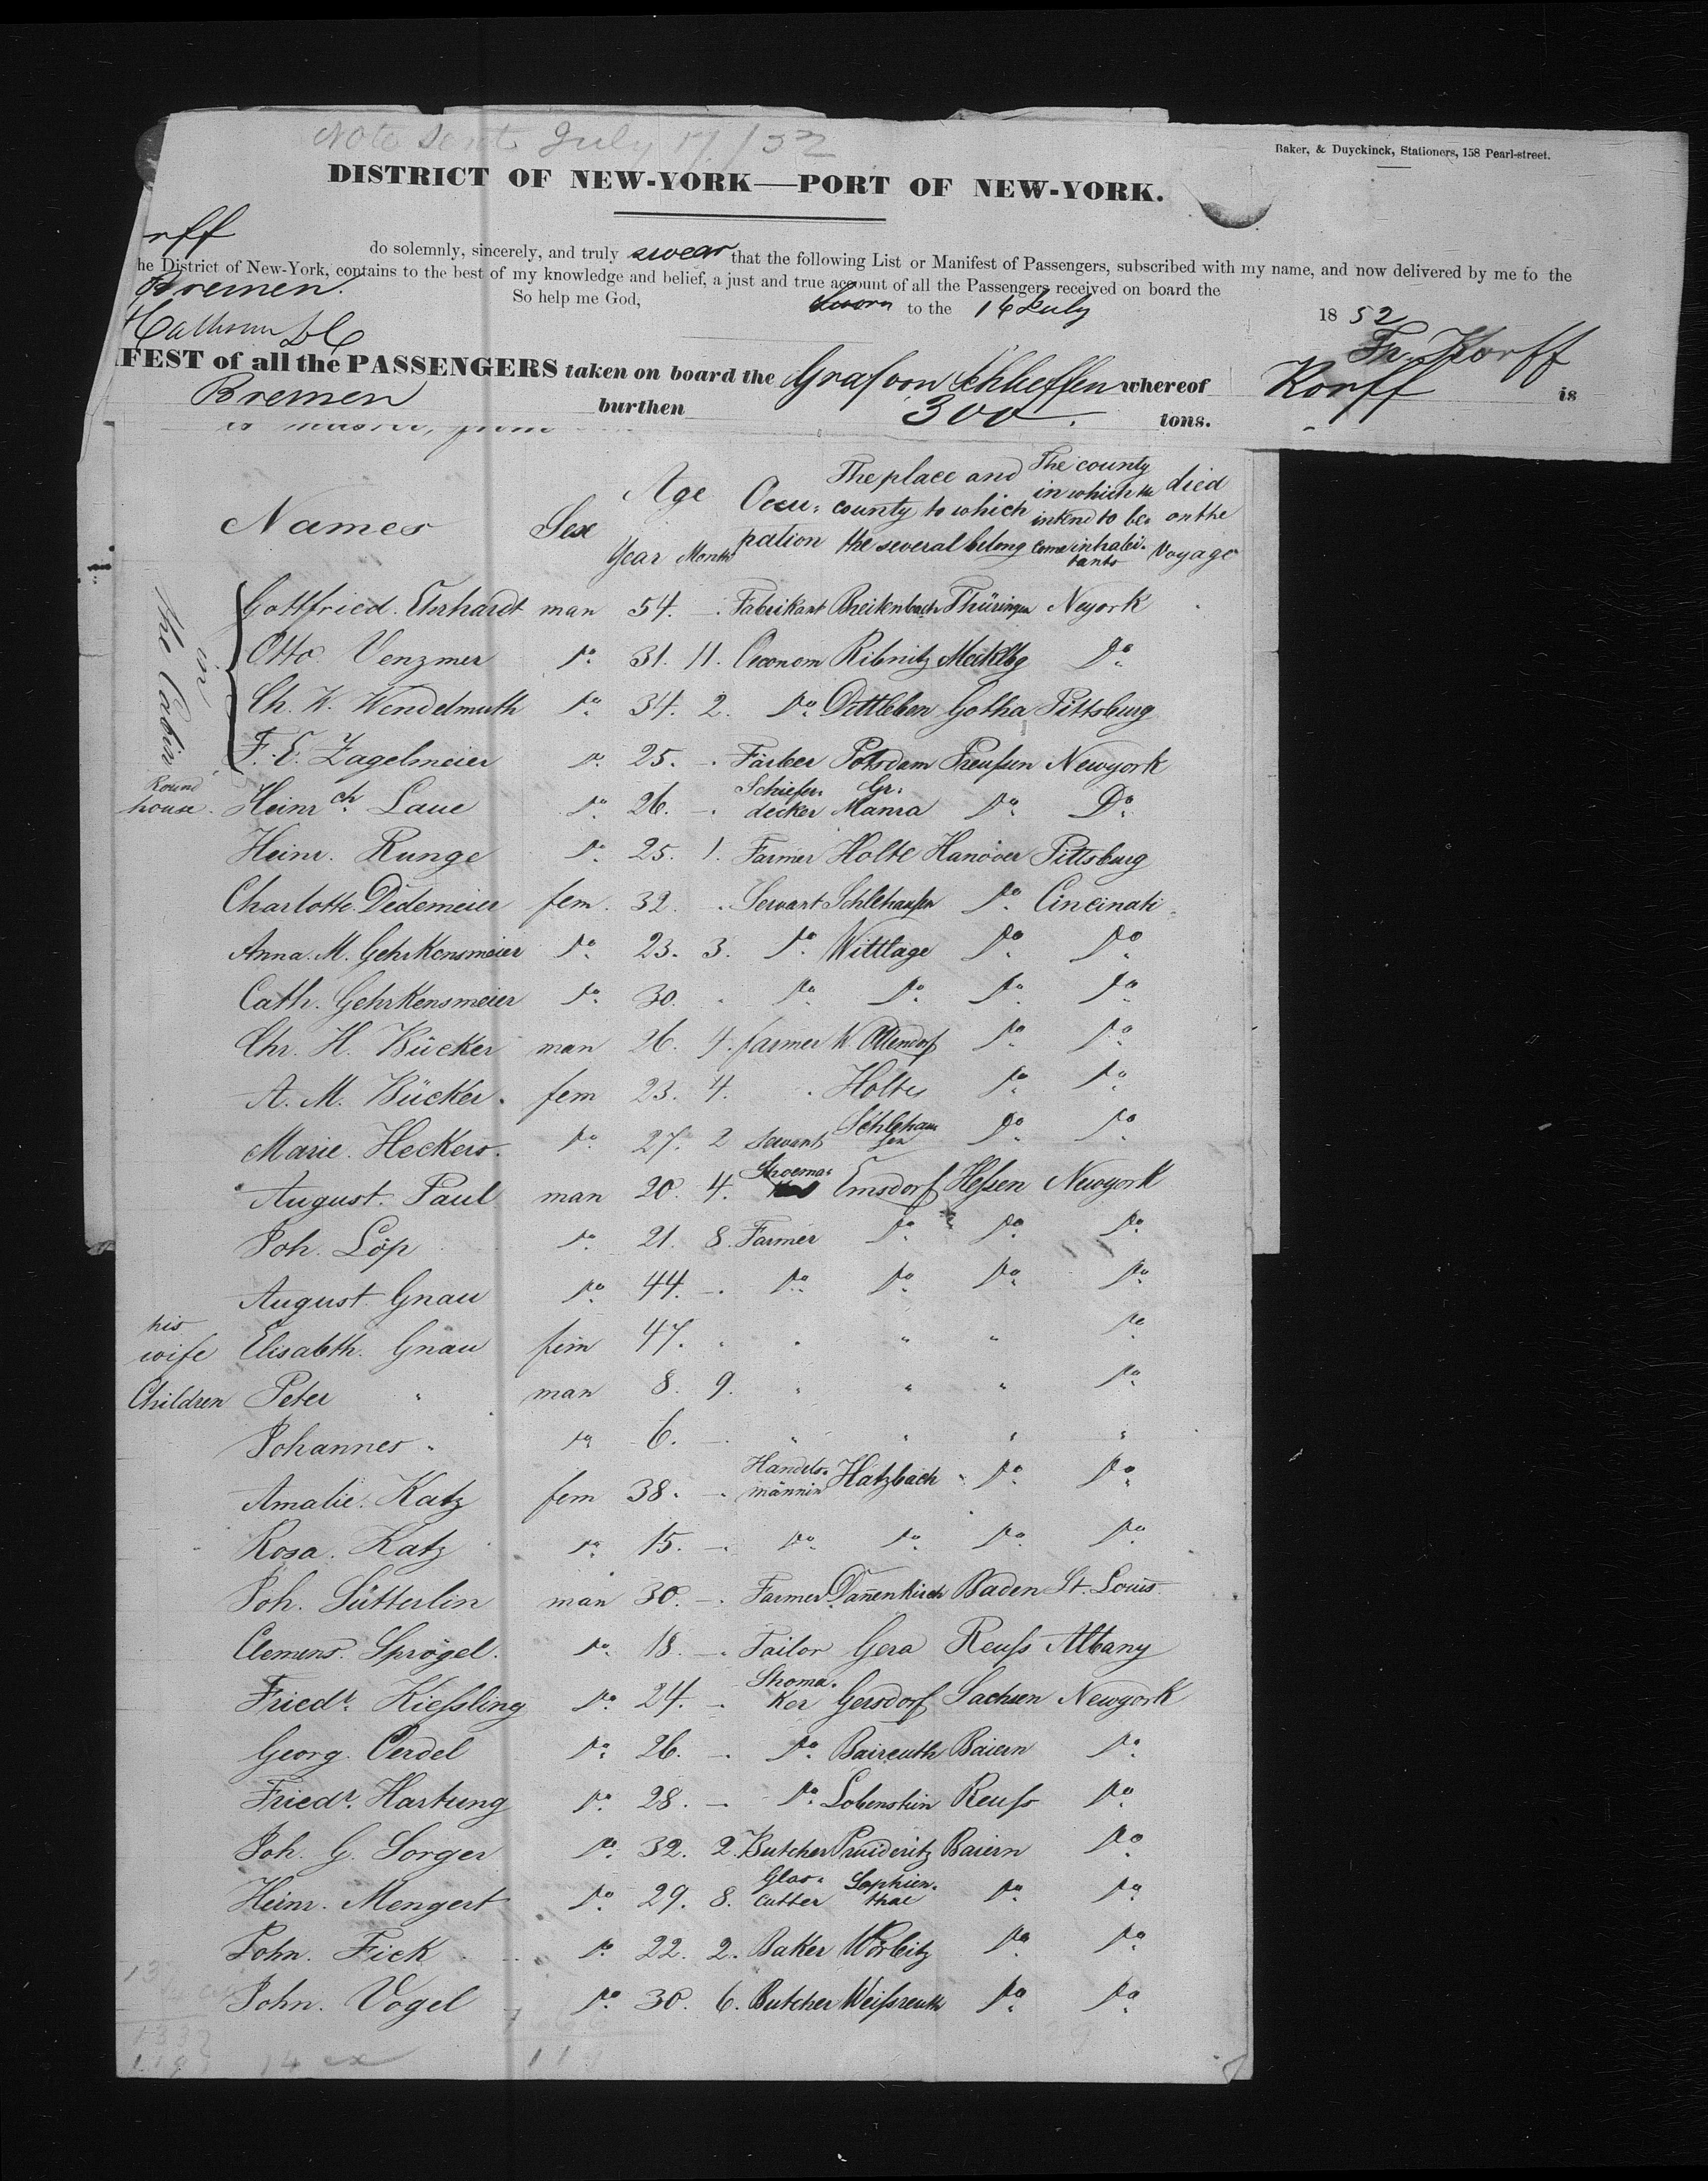 Note sent July 17/52
Baker, & Duyckinck, Stationers, 158 Pearl-street.
DISTRICT OF NEW-YORK—PORT OF NEW-YORK.
rff do solemnly, sincerely, and truly swear that the following List or Manifest of Passengers, subscribed with my name, and now delivered by me to the
he District of New-York, contains to the best of my knowledge and belief, a just and true account of all the Passengers received on board the
Bremen. So help me God,
Sworn to the 16 July 1852
Fr. Korff
FEST of all the PASSENGERS taken on board the Graf von Schlieffen whereof Korff is
Bremen burthen 300 tons.
Names Sex Age Year Month Occu: pation The place and county to which the several belong The county in which the intend to be: come inhabi: tants died on the Voyage
in the Cabin
Gottfried Ehrhardt man 54. -. Fabrikant Breitenbach Thüringen Neyork
Otto Venzmer do 31. 11. Oeconom Ribnitz Mecklbg Do
Ch. W. Wendelmuth do 34. 2. do Dittleben Gotha Pittsburg
F. E. Zagelmeier do 25. -. Färber Potsdam Preußen Newyork
Round house. Heinrch Laue do 26. -. Schiefer: decker Gr. Mansa do Do
Heinr. Runge do 25. 1. Farmer Holte Hanover Pittsburg
Charlotte Dedemeier fem. 32. . Servant Schlehausen do Cincinati
Anna M. Gehrkensmeier do 23. 3. do Wittlage do do
Cath. Gehrkensmeier do 30. . do do do do
Chr. H. Bücker man 26. 4. farmer W. Oldendorf do do
A. M. Bücker. fem 23. 4. . Holte do do
Marie Heckers. do 27. 2 servant Schlehau sen do do
August Paul man 20. 4. Shoema: Emsdorf Heßen Newyork
Joh. Löp do 21. 8. Farmer do do do
August Gnau do 44. -. do do do do
his wife Elisabeth Gnau fem 47. " " " " do
Children Peter " man 8. 9. " " " do
Johannes " do 6. - " " " "
Amalie Katz fem 38. -. Handels: männin Hatzbach do do
Rosa Katz do 15. -. do do do do
Joh. Sütterlin man 30. -. Farmer Dañenkirch Baden St. Louis
Clemens Sprögel. do 18. -. Tailor Gera Reuß Albany
Friedr. Kießling do 24. - Shoma: ker Gersdorf Sachsen Newyork
Georg Oerdel do 26. -. do Baireuth Baiern do
Friedr. Hartung do 28. - do Lobenstein Reuß do
Joh. G. Sorger do 32. 2. Butcher Baiern do
Heinr. Mengert do 29. 8. Glas: cutter Sophien: thal do do
John. Fick do 22. 2. Baker Wörbitz do do
John. Vogel do 30. 6. Butcher Weißreuth do do
14 ex